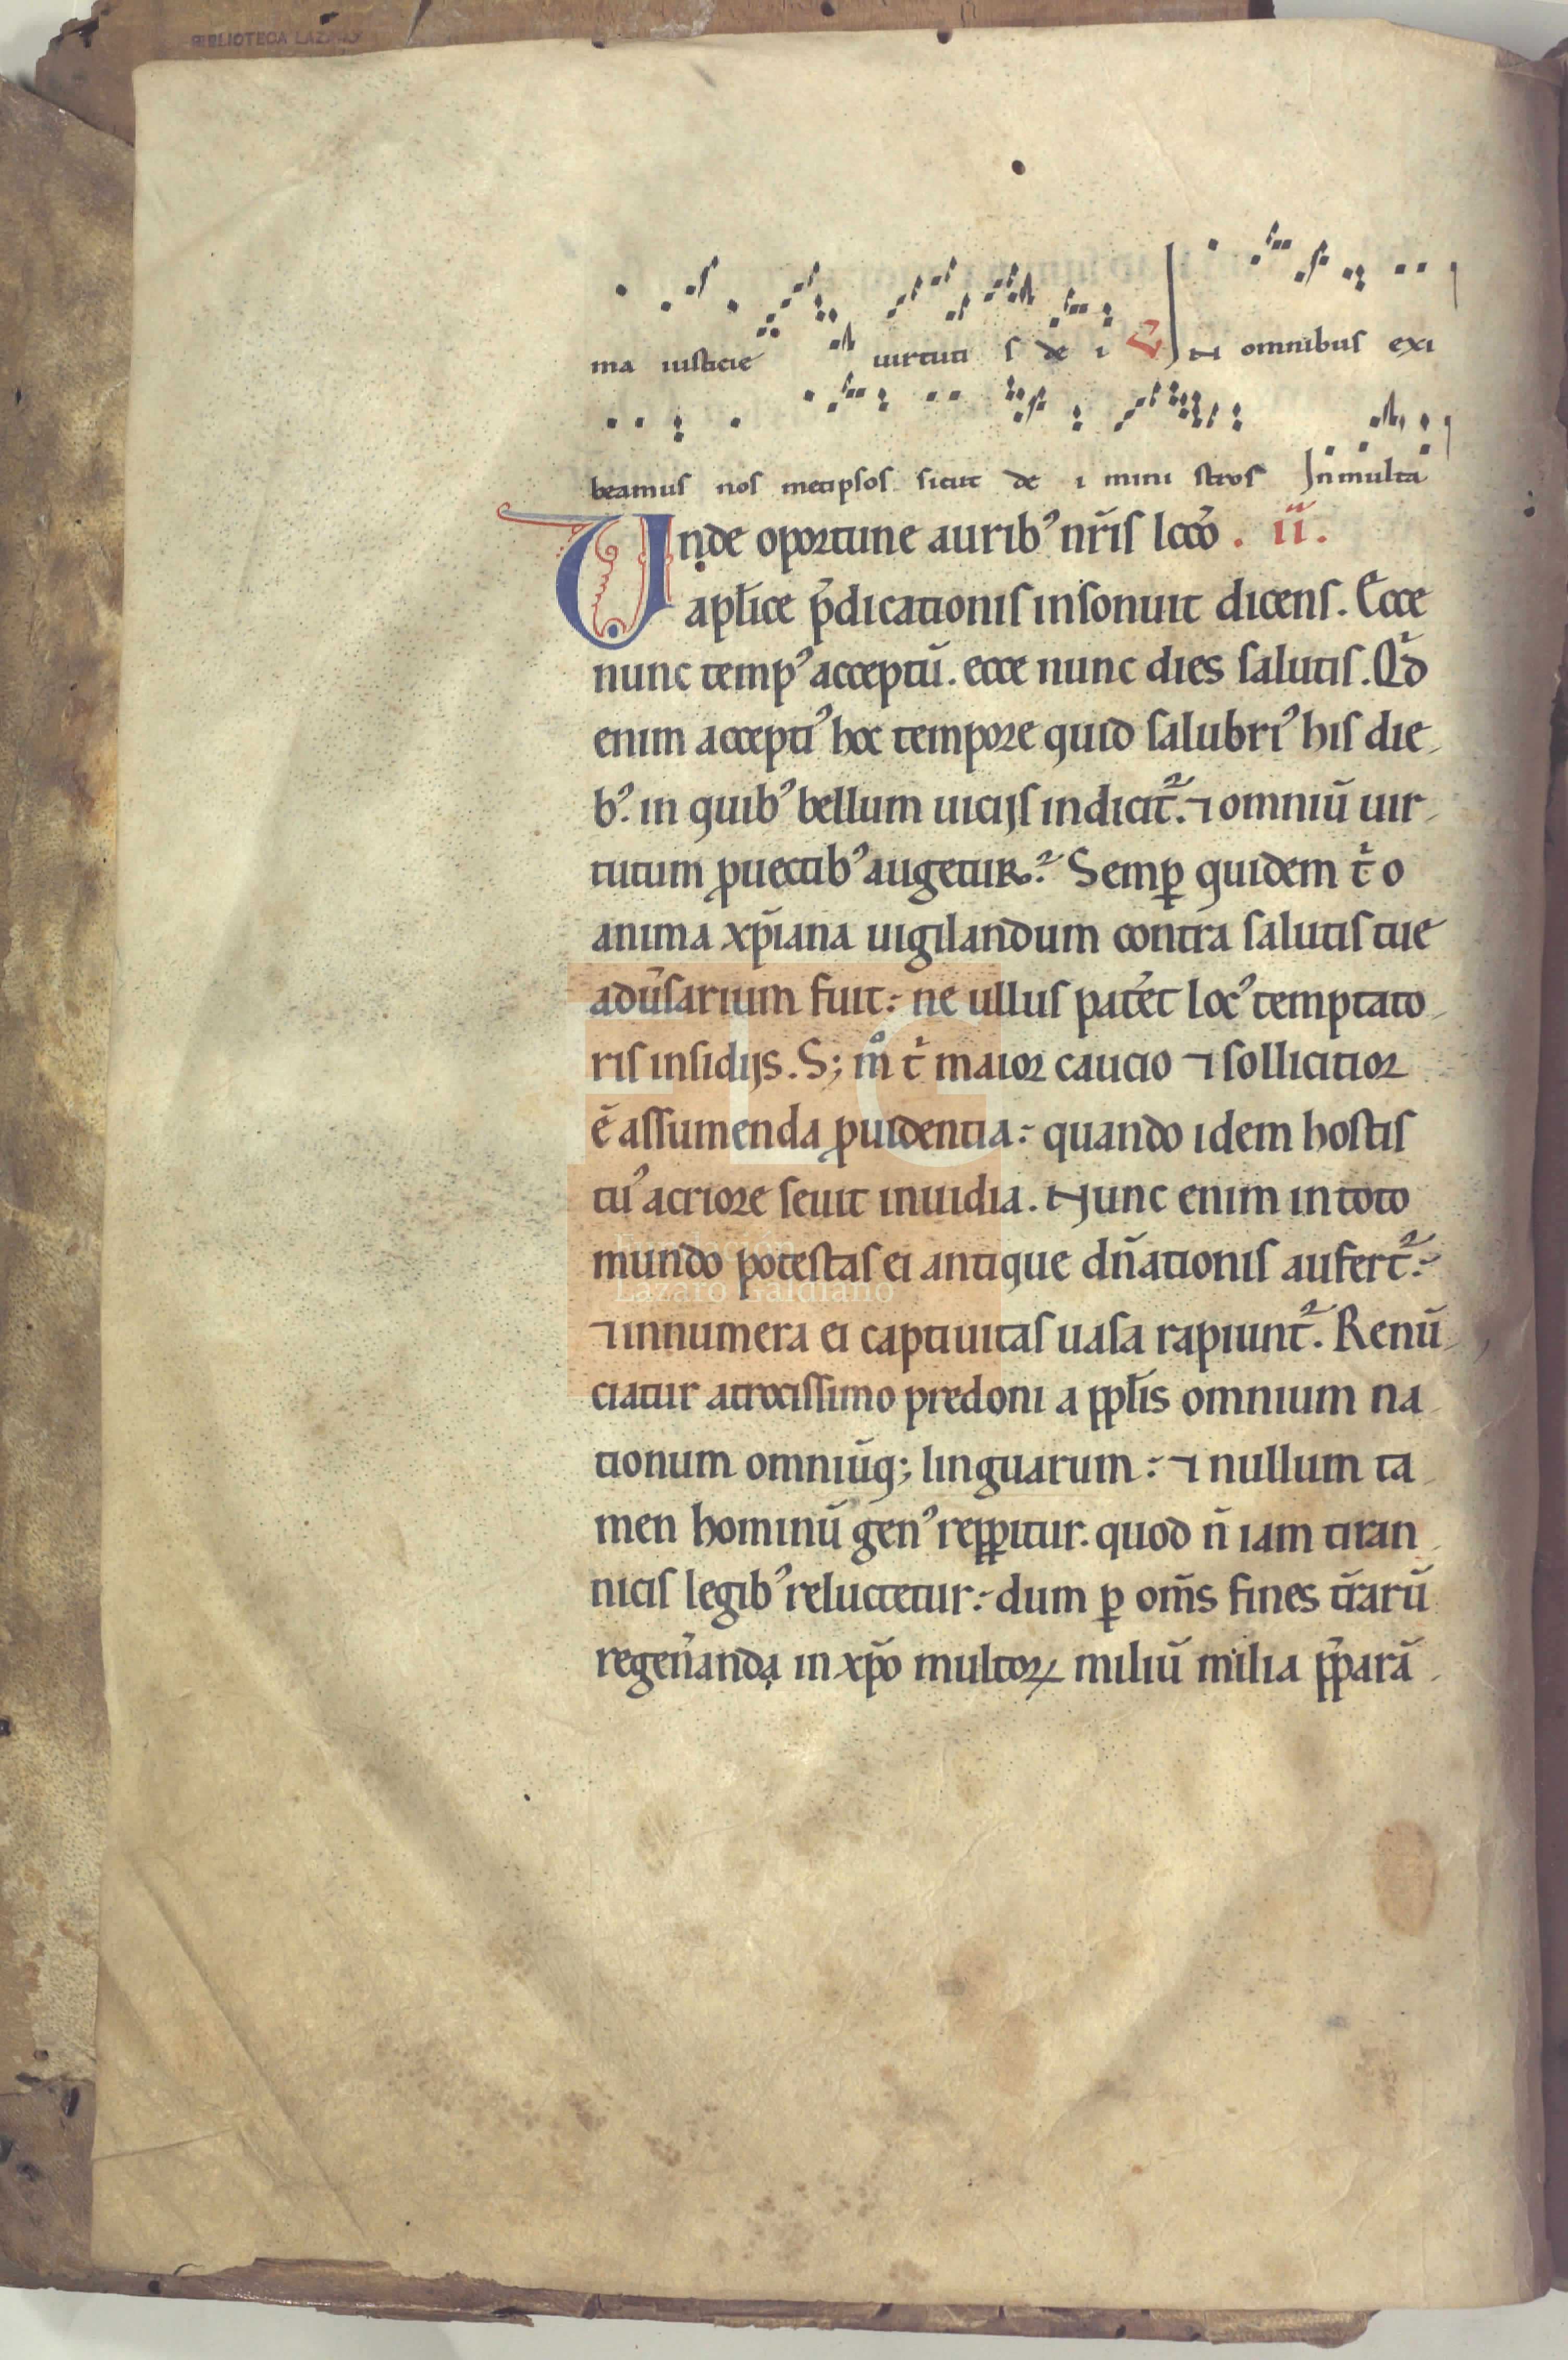 BIBLIOTECA LAZARO
ma iusticie uirtuti s de i V̶ In omnibus exi
beamus nos metipsos sicut de i mini stros In multa
Unde oportune aurib᾽ nr̃is lcc̃o . ii.
apl̃ice p̃dicationis insonuit dicens. Ecce
nunc temp᾽ acceptũ. ecce nunc dies salutis. Qđ
enim accepti᾽ hoc tempore quid salubri᾽ his die
b᾽. in quib᾽ bellum uicijs indicit᷑. ⁊ omniũ uir
tutum ꝓuectib᾽ augetur. Semꝑ quidem t̃ o
anima xp̃iana uigilandum contra salutis tue
adũsarium fuit: ne ullus pat̃et loc᾽ temptato
ris insidijs. S; m̊ t̃ maior caucio ⁊ sollicitior
ẽ assumenda ꝓuidentia: quando idem hostis
tu᾽ acriore seuit inuidia. Nunc enim in toto
mundo potestas ei antique dñationis aufert᷑:
⁊ innumera ei captiuitas uasa rapiunt᷑. Renũ
ciatur atrocissimo predoni a ppl̃is omnium na
tionum omniũq; linguarum: ⁊ nullum ta
men hominũ gen᾽ repꝑitur. quod ñ iam tiran
nicis legib᾽ reluctetur: dum ꝑ om̃s fines t̃rarũ
regeñanda in xp̃o multoꝝ miliũ milia p̃parã
FLG
Fundación
Lázaro Galdiano